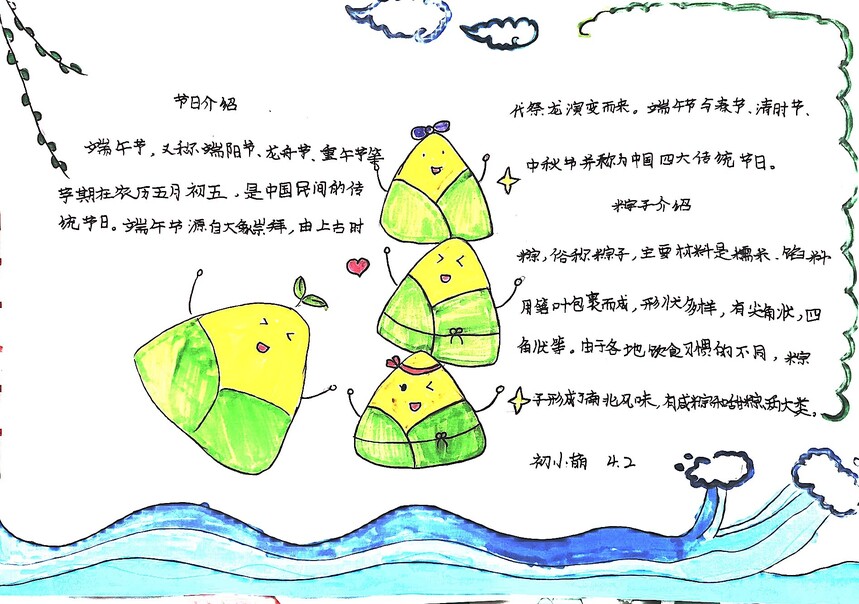 节日介绍
端午节，又称端阳节、龙舟节、重午节等
学期在农历五月初五，是中国民间的传
统节日。端午节源自天象崇拜，由上古时
代祭龙演变而来。端午节与春节、清明节、
中秋节并称为中国四大传统节日。
粽子介绍
粽，俗称粽子，主要材料是糯米、馅料
用箬叶包裹而成，形状多样，有尖角状，四
角状等。由于各地饮食习惯的不同，粽
子形成了南北风味，有咸粽和甜粽两大类。
初小萌 4.2